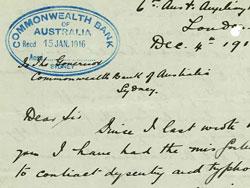 COMMONWEALTH BANK
OF
AUSTRALIA
Recd 15 JAN. 1916
SYDNEY
6th Aust. Auxiliary
London
Dec. 4th 191
To The Governor
Commonwealth Bank of Australia
Sydney.
Dear Sir
Since I last wrote
you I have had the misfortune
to contract dysentry and typho